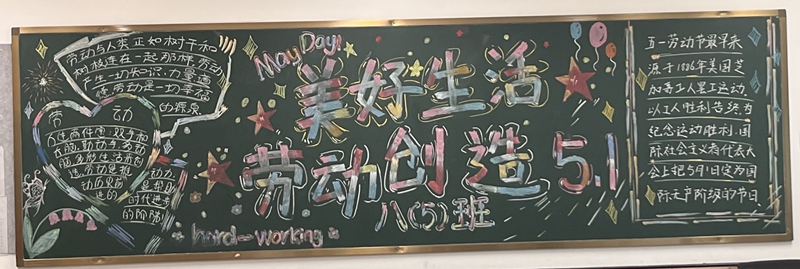 劳动与人类正如树干和
树根连在一起那样劳动
产生一切知识力量道
德劳动是一切幸福
的源泉
May Day!
美好生活
劳动创造 5.1
八(5)班
hard-working
劳动
人生两件宝双手和
大脑
劳动是推
动历史前
进的
动力
是帮助
时代进步
的阶梯
五一劳动节最早来
源于1886年美国芝
加哥工人罢工运动
以工人胜利告终为
纪念运动胜利国
际社会主义者代表大
会上把5月1日定为国
际无产阶级的节日